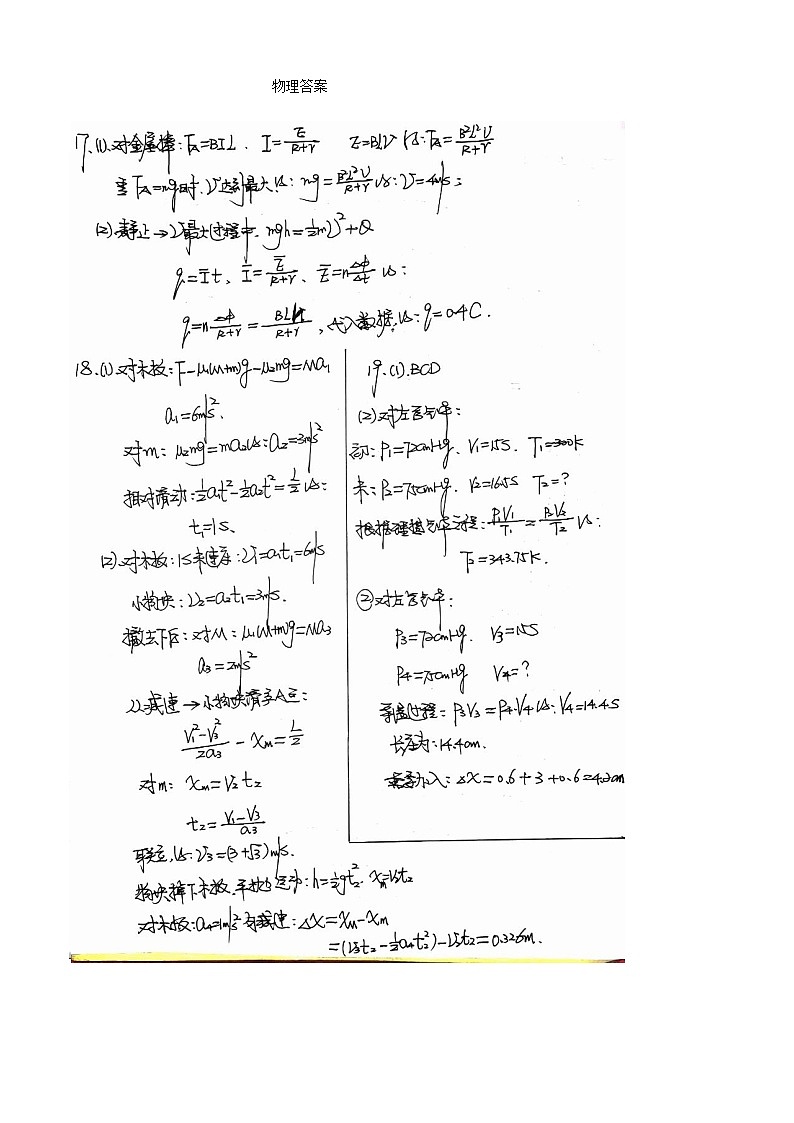 物理答案
17.(1).对金属棒:F_A=BIL. I=E/(R+r) E=BLV 得:F_A=B²L²V/(R+r)
当F_A=mg时,V达到最大,得:mg=B²L²V/(R+r) 得:V=4m/s;
(2).静止→V最大过程中.mgh=½mV²+Q
q=I̅t,I̅=E̅/(R+r)、E̅=nΔΦ/Δt 得:
q=nΔΦ/(R+r)=BLh/(R+r),代入数据,得:q=0.4C.
18.(1).对木板:F-μ₁(M+m)g-μ₂mg=Ma₁
a₁=6m/s².
对m:μ₂mg=ma₂得:a₂=3m/s²
相对滑动:½a₁t²-½a₂t²=L/2得:
t₁=1s.
(2).对木板:1s末速度:V₁=a₁t₁=6m/s
小物块:V₂=a₂t₁=3m/s.
撤去F后:对M:μ₁(M+m)g=Ma₃
a₃=2m/s²
减速→小物块滑至
(V₁²-V₃²)/2a₃-Xm=L/2
对m:Xm=V₂t₂
t₂=(V₁-V₃)/a₃
联立,得:V₃=(3+√3)m/s.
物块掉下木板.平抛运动:h=½gt₂².Xm=V₂t₂
对木板:a₄=1m/s²减速:ΔX=X_M-Xm
=(V₃t₂-½a₄t₂²)-V₂t₂=0.326m.
19.(1).BCD
(2)对左管气体:
初:P₁=72cmHg.V₁=15S.T₁=300K
末:P₂=75cmHg.V₂=16.5S T₂=?
根据理想气体方程:P₁V₁/T₁=P₂V₂/T₂得:
T₂=343.75K.
②对左管气体:
P₃=72cmHg. V₃=15S
P₄=75cmHg V₄=?
等温过程:P₃V₃=P₄.V₄得:V₄=14.4S
长度为:14.4cm.
加入:ΔX=0.6+3+0.6=4.2cm